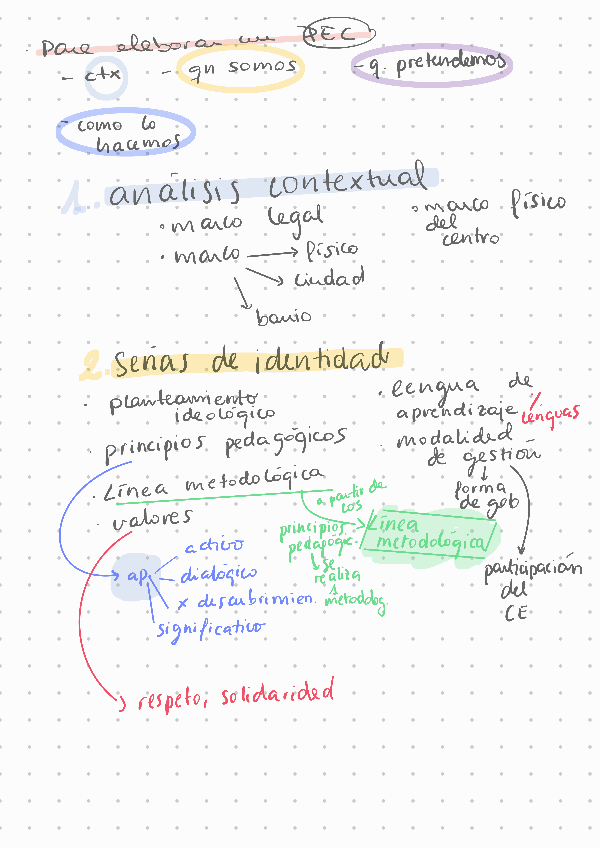 Para elaborar un PEC
- ctx - qn somos - q. pretendemos
- como lo
hacemos
1. análisis contextual
• marco legal
• marco → físico
→ ciudad
→ barrio
• marco físico
del
centro
2. señas de identidad
• planteamiento
ideológico
• principios pedagógicos
• Línea metodológica
• valores
• lengua de
aprendizaje / lenguas
• modalidad
de gestión
↓
forma
de gob
participación
del
CE
a partir de
los
principios
pedagógic.
↓ se
realiza
↓
metodolog.
Línea
metodológica
→ ap.
activo
dialógico
x descubrimien.
significativo
→ respeto, solidaridad